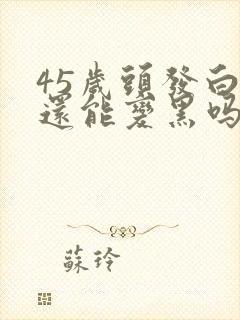 45歲頭發白
還能變黑嗎
蘇玲